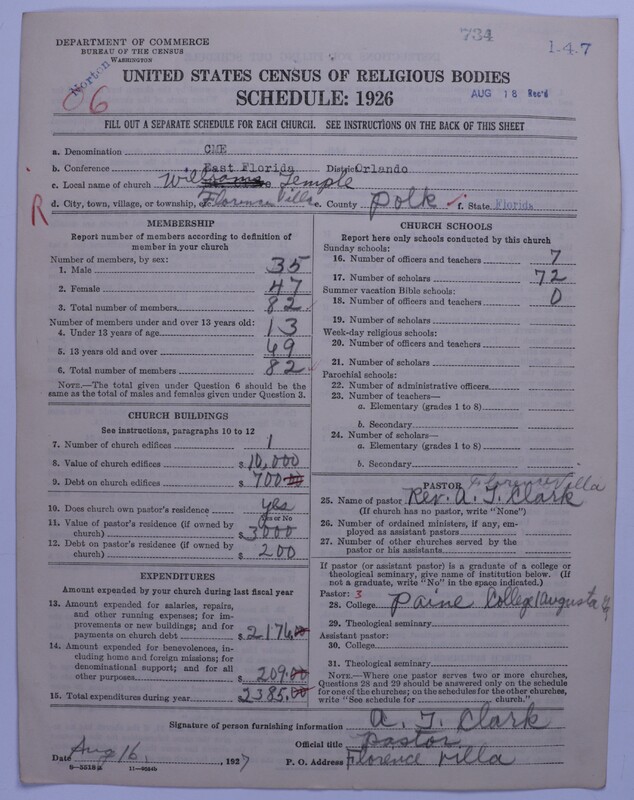 734
1-4-7
DEPARTMENT OF COMMERCE
BUREAU OF THE CENSUS
WASHINGTON
Norton
06
UNITED STATES CENSUS OF RELIGIOUS BODIES
SCHEDULE: 1926
AUG 18 Rec'd
FILL OUT A SEPARATE SCHEDULE FOR EACH CHURCH. SEE INSTRUCTIONS ON THE BACK OF THIS SHEET
a. Denomination CME
b. Conference East Florida District Orlando
c. Local name of church Williams Temple
R
d. City, town, village, or township, Florence Villa e. County Polk f. State Florida
MEMBERSHIP
Report number of members according to definition of
member in your church
Number of members, by sex:
1. Male 35
2. Female 47
3. Total number of members 82
Number of members under and over 13 years old:
4. Under 13 years of age 13
5. 13 years old and over 69
6. Total number of members 82
NOTE.—The total given under Question 6 should be the
same as the total of males and females given under Question 3.
CHURCH BUILDINGS
See instructions, paragraphs 10 to 12
7. Number of church edifices 1
8. Value of church edifices $ 10,000
9. Debt on church edifices $ 700.00
10. Does church own pastor's residence? yes
Yes or No
11. Value of pastor's residence (if owned by
church) $ 3000
12. Debt on pastor's residence (if owned by
church) $ 200
EXPENDITURES
Amount expended by your church during last fiscal year
13. Amount expended for salaries, repairs,
and other running expenses; for im-
provements or new buildings; and for
payments on church debt $ 2176.00
14. Amount expended for benevolences, in-
cluding home and foreign missions; for
denominational support; and for all
other purposes $ 209.00
15. Total expenditures during year $ 2385.00
CHURCH SCHOOLS
Report here only schools conducted by this church
Sunday schools:
16. Number of officers and teachers 7
17. Number of scholars 72
Summer vacation Bible schools:
18. Number of officers and teachers 0
19. Number of scholars
Week-day religious schools:
20. Number of officers and teachers
21. Number of scholars
Parochial schools:
22. Number of administrative officers
23. Number of teachers—
a. Elementary (grades 1 to 8)
b. Secondary
24. Number of scholars—
a. Elementary (grades 1 to 8)
b. Secondary
PASTOR Florence Villa
25. Name of pastor Rev. A. J. Clark
(If church has no pastor, write "None")
26. Number of ordained ministers, if any, em-
ployed as assistant pastors
27. Number of other churches served by the
pastor or his assistants
If pastor (or assistant pastor) is a graduate of a college or
theological seminary, give name of institution below. (If
not a graduate, write "No" in the space indicated.)
Pastor: 3
28. College Paine College Augusta
29. Theological seminary
Assistant pastor:
30. College
31. Theological seminary
NOTE.—Where one pastor serves two or more churches,
Questions 28 and 29 should be answered only on the schedule
for one of the churches; on the schedules for the other churches,
write "See schedule for church."
Signature of person furnishing information A. J. Clark
Official title pastor
Date Aug 16, 1927 P. O. Address Florence Villa